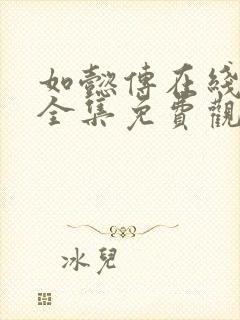 如懿傳在綫
全集免費觀
冰兒